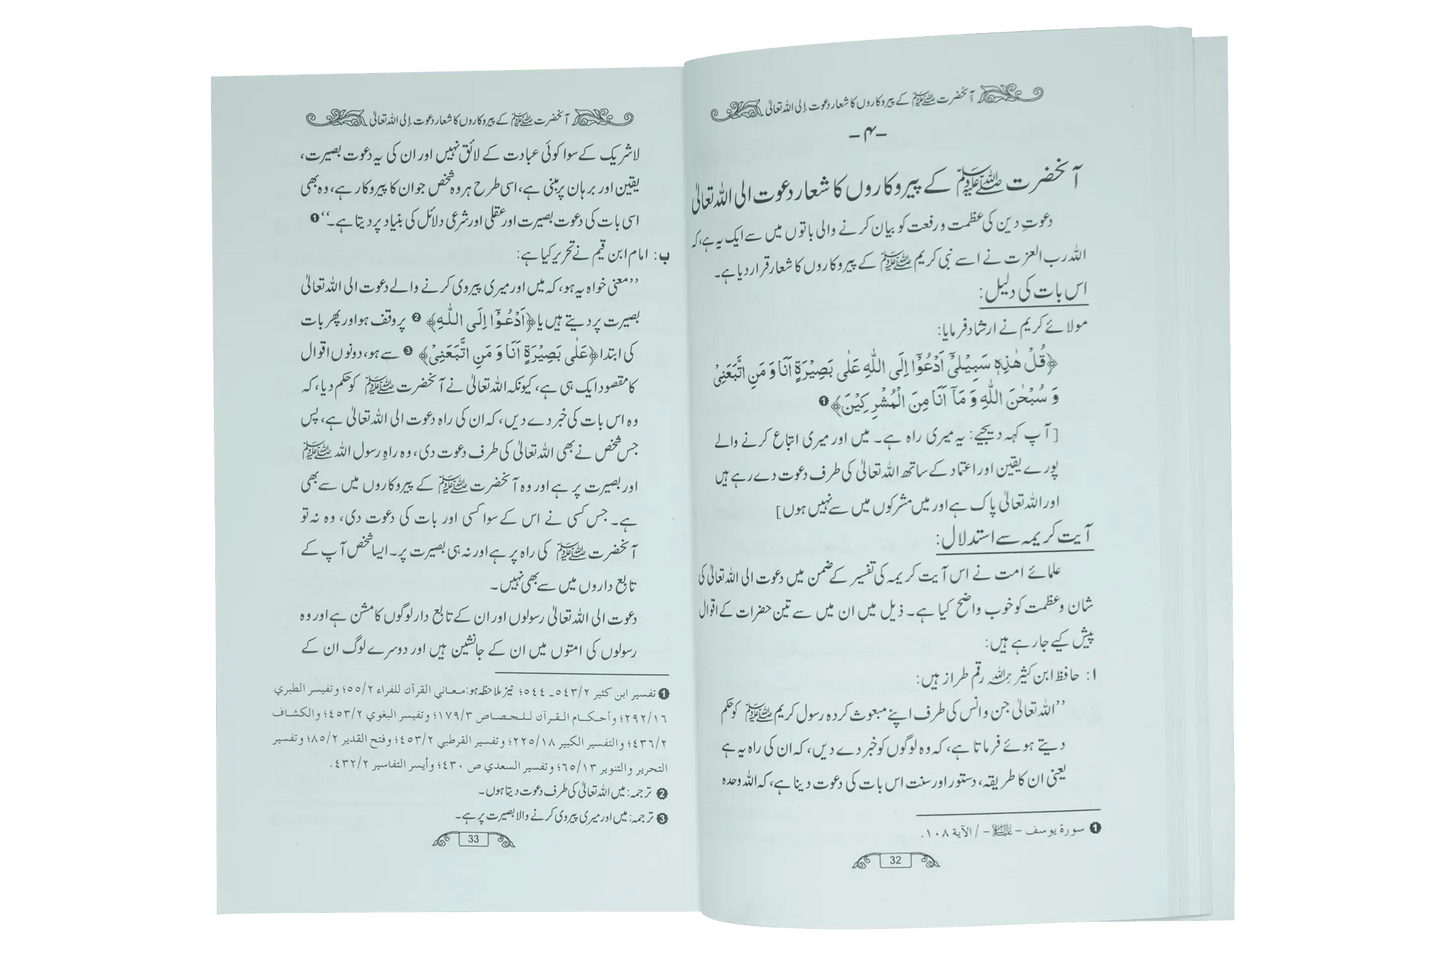 آنحضرت ﷺ کے پیروکاروں کا شعار دعوت اِلی اللہ تعالیٰ
-۴-
آنحضرت ﷺ کے پیروکاروں کا شعار دعوت الی اللہ تعالیٰ
دعوتِ دین کی عظمت و رفعت کو بیان کرنے والی باتوں میں سے ایک یہ ہے، کہ
اللہ رب العزت نے اسے نبی کریم ﷺ کے پیروکاروں کا شعار قرار دیا ہے۔
اس بات کی دلیل:
مولائے کریم نے ارشاد فرمایا:
﴿قُلْ هٰذِهٖ سَبِيْلِيْٓ اَدْعُوْٓا اِلَى اللّٰهِ عَلٰى بَصِيْرَةٍ اَنَا وَ مَنِ اتَّبَعَنِيْ
وَ سُبْحٰنَ اللّٰهِ وَ مَآ اَنَا مِنَ الْمُشْرِكِيْنَ﴾ ❶
[آپ کہہ دیجیے: یہ میری راہ ہے۔ میں اور میری اتباع کرنے والے
پورے یقین اور اعتماد کے ساتھ اللہ تعالیٰ کی طرف دعوت دے رہے ہیں
اور اللہ تعالیٰ پاک ہے اور میں مشرکوں میں سے نہیں ہوں]
آیت کریمہ سے استدلال:
علمائے امت نے اس آیت کریمہ کی تفسیر کے ضمن میں دعوت الی اللہ تعالیٰ کی
شان و عظمت کو خوب واضح کیا ہے۔ ذیل میں ان میں سے تین حضرات کے اقوال
پیش کیے جا رہے ہیں:
ا: حافظ ابن کثیر رحمہ اللہ رقم طراز ہیں:
’’اللہ تعالیٰ جن و انس کی طرف اپنے مبعوث کردہ رسول کریم ﷺ کو حکم
دیتے ہوئے فرماتا ہے، کہ وہ لوگوں کو خبر دے دیں، کہ ان کی راہ یہ ہے
یعنی ان کا طریقہ، دستور اور سنت اس بات کی دعوت دینا ہے، کہ اللہ وحدہ
❶ سورة يوسف – علیہ السلام – / الآية ١٠٨.
32
آنحضرت ﷺ کے پیروکاروں کا شعار دعوت اِلی اللہ تعالیٰ
لا شریک کے سوا کوئی عبادت کے لائق نہیں اور ان کی یہ دعوت بصیرت،
یقین اور برہان پر مبنی ہے، اسی طرح ہر وہ شخص جو ان کا پیروکار ہے، وہ بھی
اسی بات کی دعوت بصیرت اور عقلی اور شرعی دلائل کی بنیاد پر دیتا ہے۔‘‘ ❶
ب: امام ابن قیم نے تحریر کیا ہے:
’’معنی خواہ یہ ہو، کہ میں اور میری پیروی کرنے والے دعوت الی اللہ تعالیٰ
بصیرت پر دیتے ہیں یا ﴿اَدْعُوْٓا اِلَى اللّٰهِ﴾ ❷ پر وقف ہو اور پھر بات
کی ابتدا ﴿عَلٰى بَصِيْرَةٍ اَنَا وَ مَنِ اتَّبَعَنِيْ﴾ ❸ سے ہو، دونوں اقوال
کا مقصود ایک ہی ہے، کیونکہ اللہ تعالیٰ نے آنحضرت ﷺ کو حکم دیا، کہ
وہ اس بات کی خبر دے دیں، کہ ان کی راہ دعوت الی اللہ تعالیٰ ہے، پس
جس شخص نے بھی اللہ تعالیٰ کی طرف دعوت دی، وہ راہِ رسول اللہ ﷺ
اور بصیرت پر ہے اور وہ آنحضرت ﷺ کے پیروکاروں میں سے بھی
ہے۔ جس کسی نے اس کے سوا کسی اور بات کی دعوت دی، وہ نہ تو
آنحضرت ﷺ کی راہ پر ہے اور نہ ہی بصیرت پر۔ ایسا شخص آپ کے
تابع داروں میں سے بھی نہیں۔
دعوت الی اللہ تعالیٰ رسولوں اور ان کے تابع دار لوگوں کا مشن ہے اور وہ
رسولوں کی امتوں میں ان کے جانشین ہیں اور دوسرے لوگ ان کے
❶ تفسیر ابن کثیر ٥٤٣/٢ـ٥٤٤؛ نیز ملاحظہ ہو: معاني القرآن للفراء ٥٥/٢؛ وتفسير الطبري
٢٩٢/١٦؛ وأحكام القرآن للجصاص ١٧٩/٣؛ وتفسير البغوي ٤٥٣/٢؛ والكشاف
٤٣٦/٢؛ والتفسير الكبير ٢٢٥/١٨؛ وتفسير القرطبي ٤٥٣/٢؛ وفتح القدير ٨٥/٢؛ وتفسير
التحرير والتنوير ٦٥/١٣؛ وتفسير السعدي ص ٤٣٠؛ وأيسر التفاسير ٤٣٢/٢.
❷ ترجمہ: میں اللہ تعالیٰ کی طرف دعوت دیتا ہوں۔
❸ ترجمہ: میں اور میری پیروی کرنے والا بصیرت پر ہے۔
33